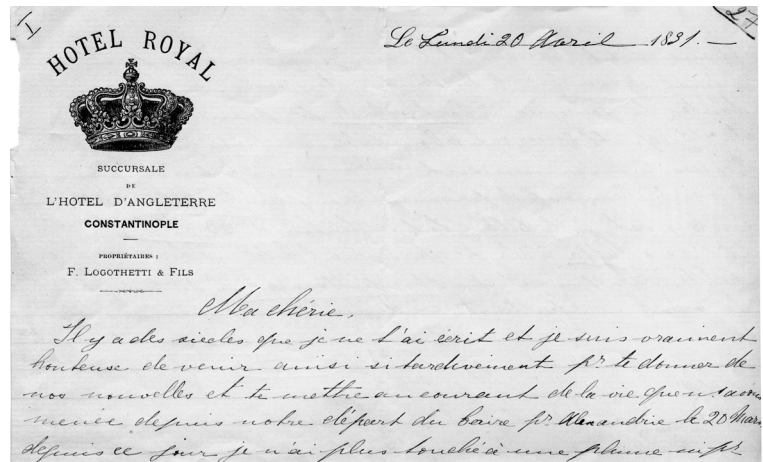 I
27
HOTEL ROYAL
Le Lundi 20 Avril 1891.—
SUCCURSALE
DE
L'HOTEL D'ANGLETERRE
CONSTANTINOPLE
PROPRIÉTAIRES :
F. LOGOTHETTI & FILS
Ma chérie,
Il y a des siècles que je ne t'ai écrit et je suis vraiment
honteuse de venir ainsi si tardivement pr te donner de
nos nouvelles et te mettre au courant de la vie que n. avons
menée depuis notre départ du Caire pr Alexandrie le 20 Mars
depuis ce jour je n'ai plus touché à une plume ni pr